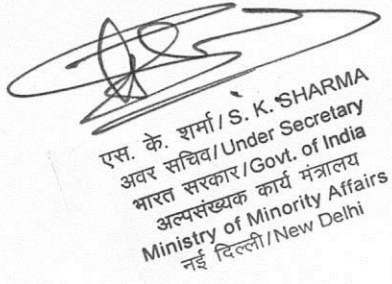 एस. के. शर्मा/S. K. SHARMA
अवर सचिव/Under Secretary
भारत सरकार/Govt. of India
अल्पसंख्यक कार्य मंत्रालय
Ministry of Minority Affairs
नई दिल्ली/New Delhi